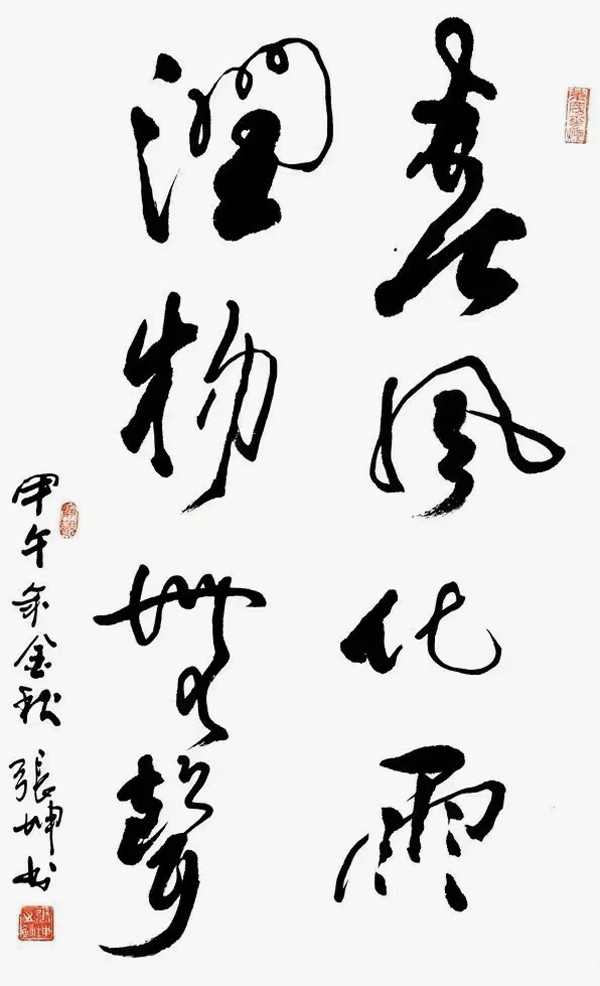 春風化雨
潤物無聲
甲午年金秋 張坤书